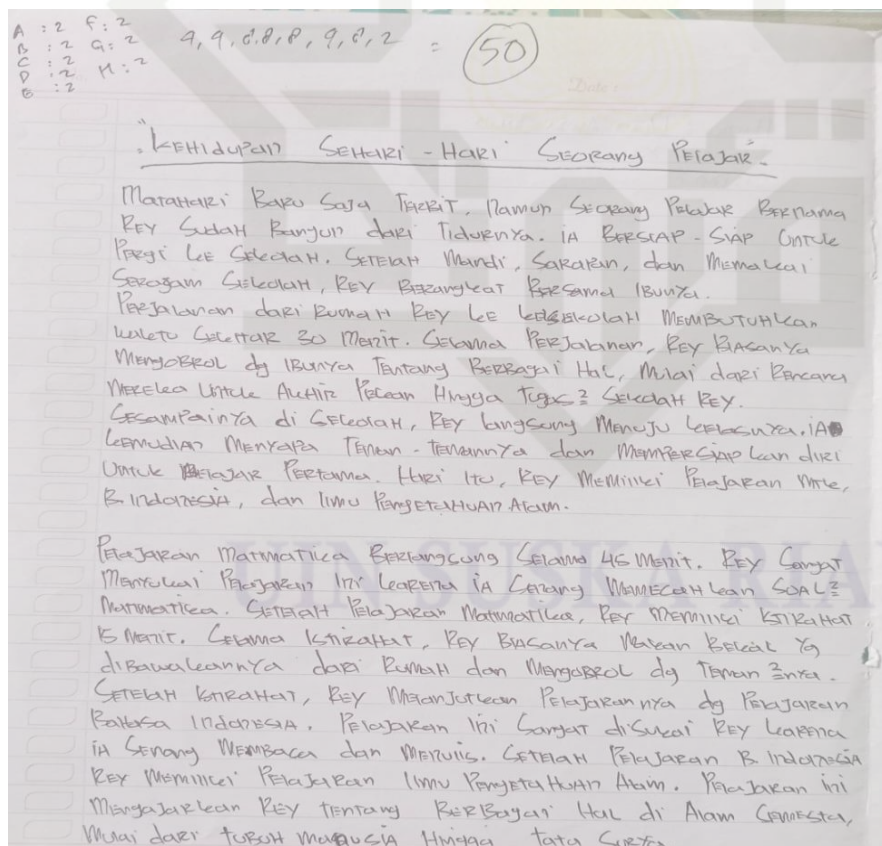 A : 2 F : 2
B : 2 G : 2
C : 2 H : 2
D : 2
E : 2
9, 9, 8, 8, 8, 9, 8, 2 = 50
Date :
"KEHidupan SEHARi - HARi SEORang PElaJaR."
MataHaRi BaRu SaJa TERBiT, Namun SEORang PElaJaR BERNama
REY SudaH Bangun daRi TiduRnYa. iA BERSiAP - SiAP UnTuk
PERgi kE SEkolaH. SETElaH Mandi, SaRaPan, dan MEMakai
SERagam SEkolaH, REY BERangkat BERSama IBunYa.
PERJalanan daRi RumaH REY kE kESEkolaH MEMBUTUHkan
WakTu SEkiTaR 30 MEniT. SElama PERJalanan, REY BiASanYa
MEngOBROL dg IBunYa TEnTang BERBagai Hal, Mulai daRi REncana
MEREka UnTuk AkHiR PEkan Hingga Tugas² SEkolaH REY.
SESamPainYa di SEkolaH, REY langsung MEnuJu kElasnYa. iA
kEmudian MEnYaPa TEman - TEmannYa dan MEMPERSiAPkan diRi
UnTuk BElaJaR PERTama. HaRi ITu, REY MEMiliki PElaJaRan MTK,
B. indonESiA, dan Ilmu PEngETaHuan Alam.
PElaJaRan MatmaTika BERlangsung SElama 45 MEniT. REY Sangat
MEnYukai PElaJaRan Ini kaREna iA SEnang MEMECaHkan SOAL²
MatmaTika. SETElaH PElaJaRan MatmaTika, REY MEMiliki ISTiRaHaT
15 MEniT. SElama ISTiRaHaT, REY BiASanYa Makan BEkal Yg
diBawakannYa daRi RumaH dan MEngOBROL dg TEman²nYa.
SETElaH ISTiRaHaT, REY MElanJuTkan PElaJaRannYa dg PElaJaRan
BaHasa IndonESiA. PElaJaRan Ini Sangat diSukai REY kaREna
iA SEnang MEMBaca dan MEnulis. SETElaH PElaJaRan B. indonESiA
REY MEMiliki PElaJaRan Ilmu PEngETaHuan Alam. PElaJaRan ini
MEngaJaRkan REY tEnTang BERBagai Hal di Alam SEmESTa,
Mulai daRi TuBuH ManuSiA Hingga TaTa SuRYa
UIN SUSKA RIA